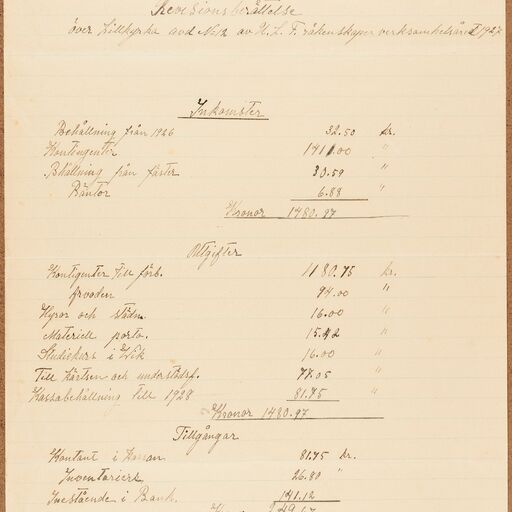 Revisionsberättelse
över Lillkyrka avd No 12 av U.L.F. räkenskaper verksamhetsåret 1927
Inkomster
Behållning från 1926 32.50 kr.
Kontingenter 1411.00 "
Bhållning från fäster 30.59 "
Räntor 6.88 "
Kronor 1480.97
Utgifter
Kontigenter till förb. 1180.75 kr.
Arvoden 94.00 "
Hyror och städn. 16.00 "
Materiell porto. 15.42 "
Studiekurs i Wik 16.00 "
Till och understödsf. 77.05 "
Kassabehållning till 1928 81.75 "
Kronor 1480.97
Tillgångar
Kontant i kassan 81.75 kr.
Inventarier 26.80 "
Inestående i Bank. 141.12